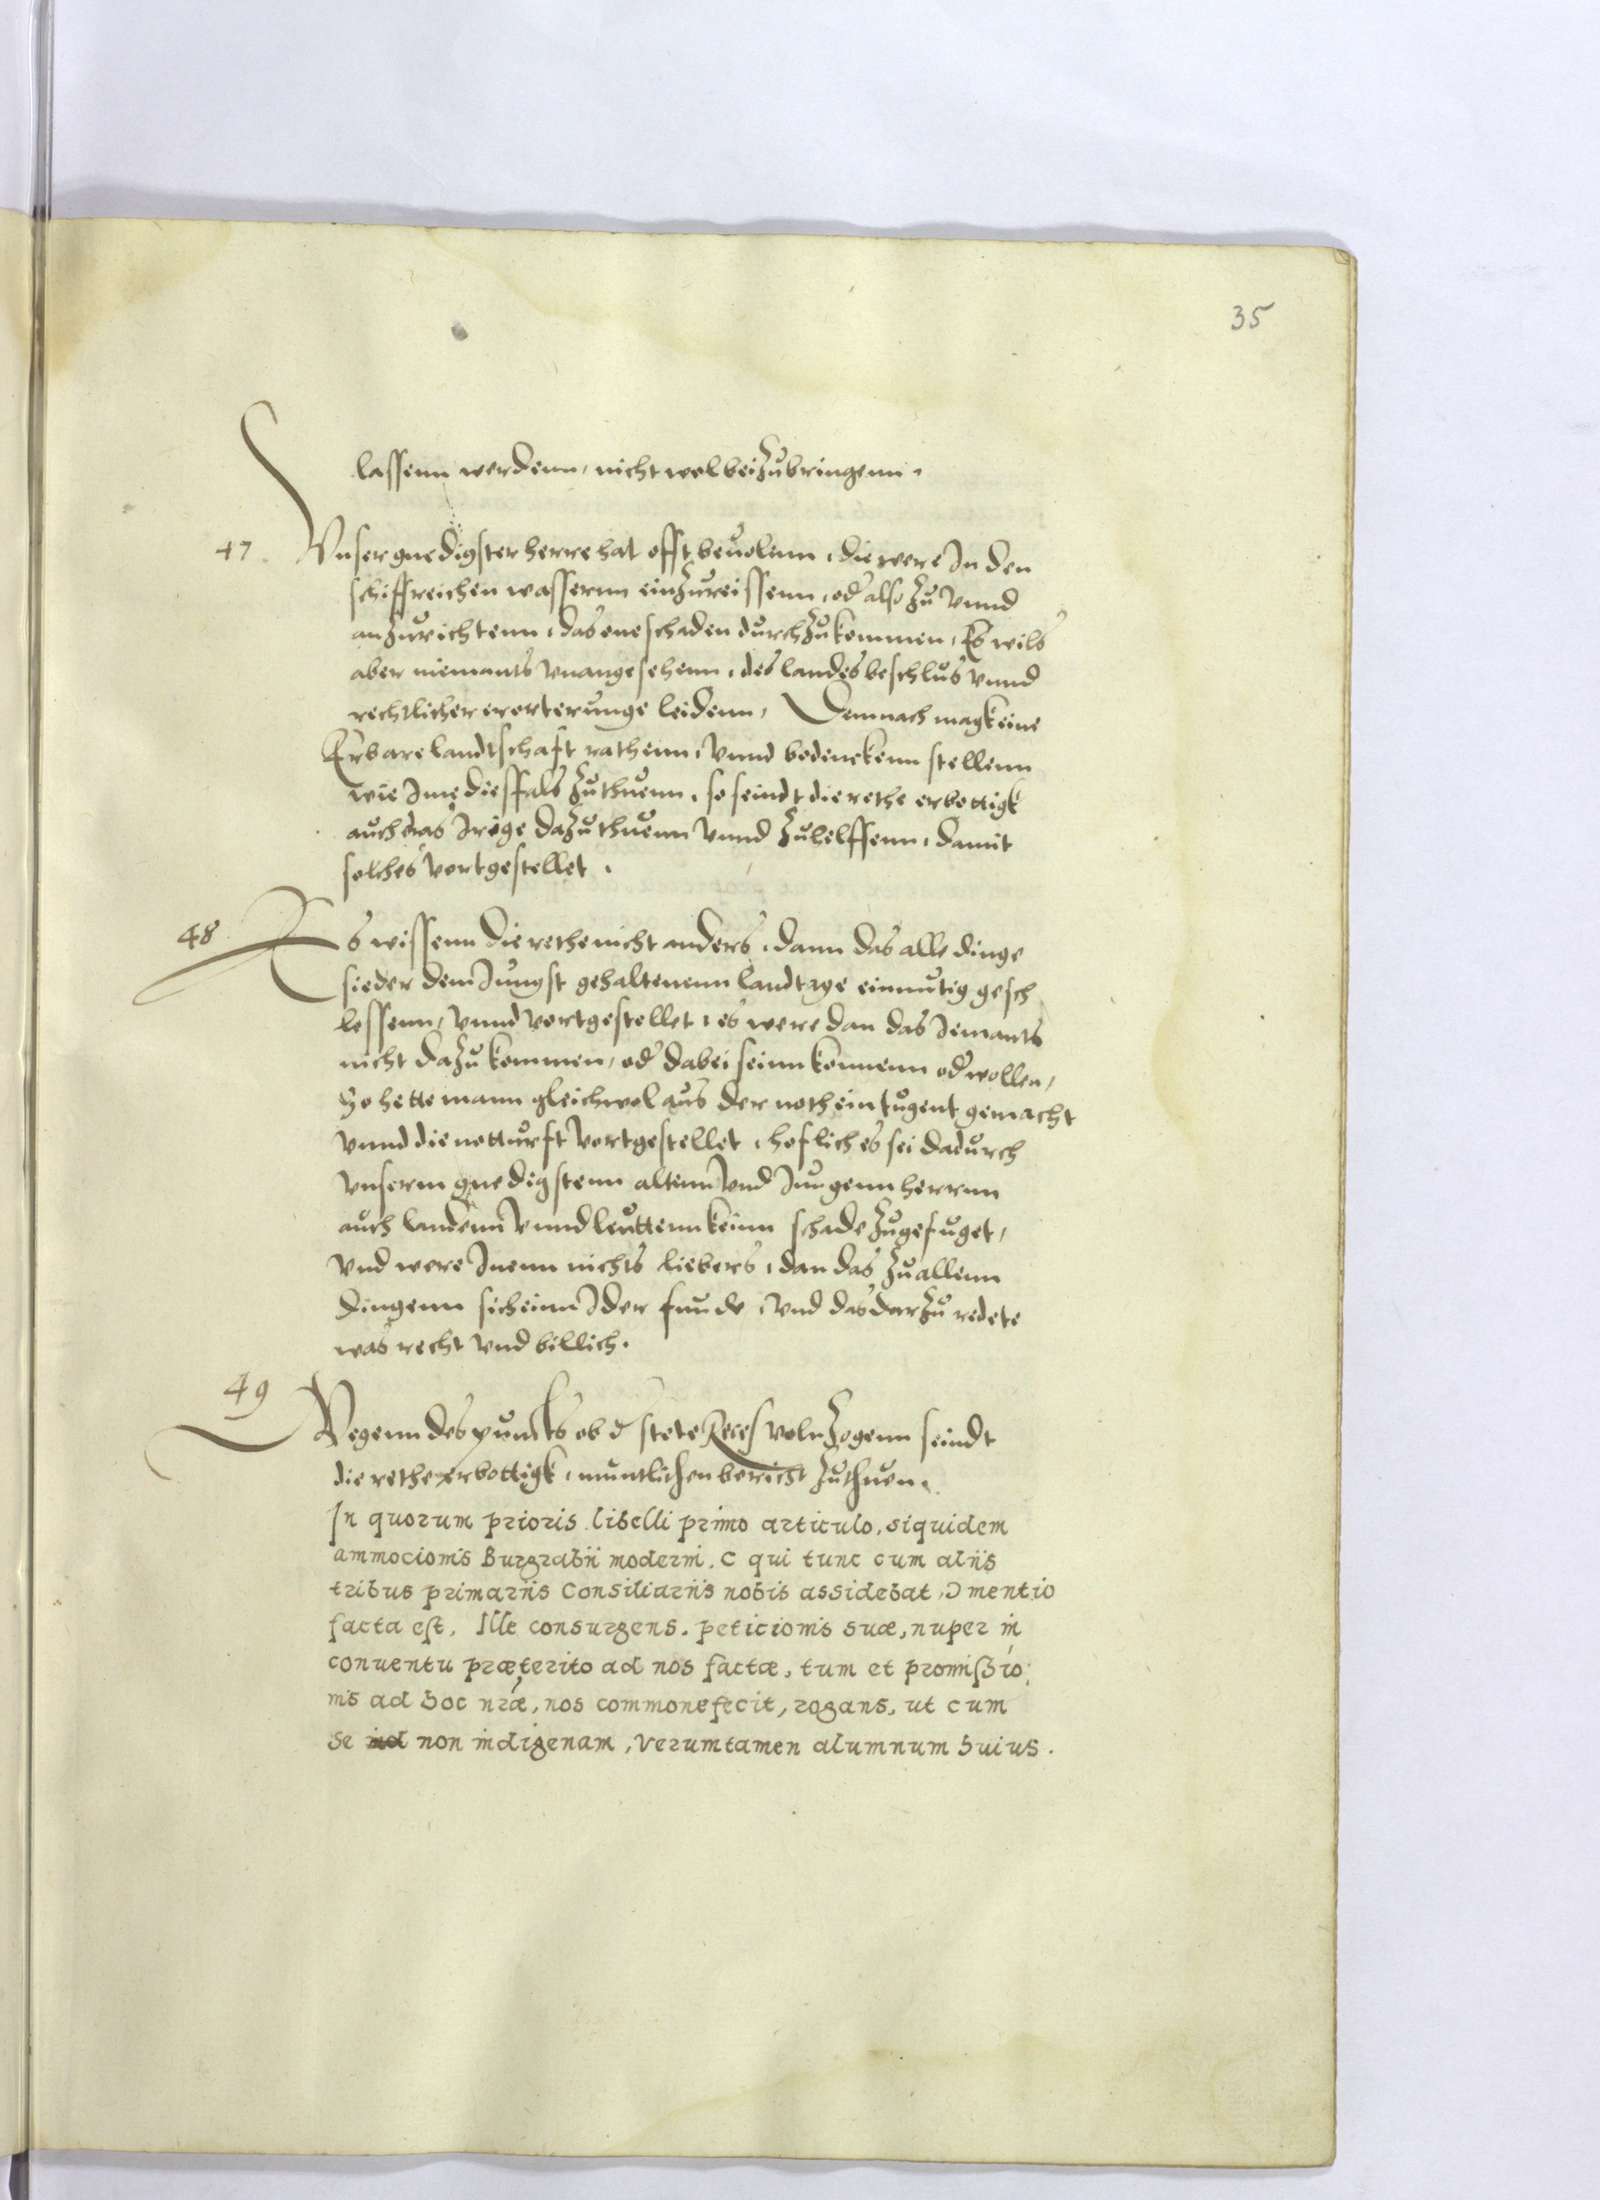 35
lassenn werdenn, nicht wol beizubringenn.
47. Vnser gnedigster herre hat offt beuolenn, die were In den
schiffreichen wassernn einzureissenn, od also zu vnnd
anzurichtenn, das one schaden durchzukommen, Es wils
aber niemants vnangesehenn, des landes beschlus vnnd
rechtlicher erorterunge leidenn, Demnach magk eine
Erbare landtschaft rathenn, vnnd bedenckenn stellenn
wie Ime diessfals zuthuenn, so seindt die rethe erbottigk
auch das Irige dazuthuenn vnnd zuhelffenn, damit
solches vortgestellet.
48 Es wissenn die rethe nicht anders, dann das alle dinge
sieder dem Jungst gehaltenenn landtage einmutig gesch
lossenn, vnnd vortgestellet, es were dan das Jemants
nicht dazu kommen, od dabei seinn konnenn od wollen,
So hette mann gleichwol aus der noth ein tugent gemacht
vnnd die notturft vortgestellet, hoflich es sei dadurch
vnserm gnedigstenn altenn vnd Jungenn herrnn
auch landenn vnnd leuttenn keinn schade zugefuget,
vnd were Inenn nichts liebers, dan das zu allenn
dingenn sich einn Ider funde, vnd das darzu redete
was recht vnd billich.
49 Wegenn des puncts ob d stete Reces volnzogenn seindt
die rethe erbottigk, muntlichen bericht zuthuen.
In quorum prioris libelli primo articulo, siquidem
ammocionis Burgrabii moderni, ( qui tunc cum aliis
tribus primariis Consiliariis nobis assidebat, ) mentio
facta est, Ille consurgens, peticionis suæ, nuper in
conuentu præterito ad nos factæ, tum et promißio:
nis ad hoc nræ, nos commonefecit, rogans, ut cum
se non indigenam, verumtamen alumnum huius.